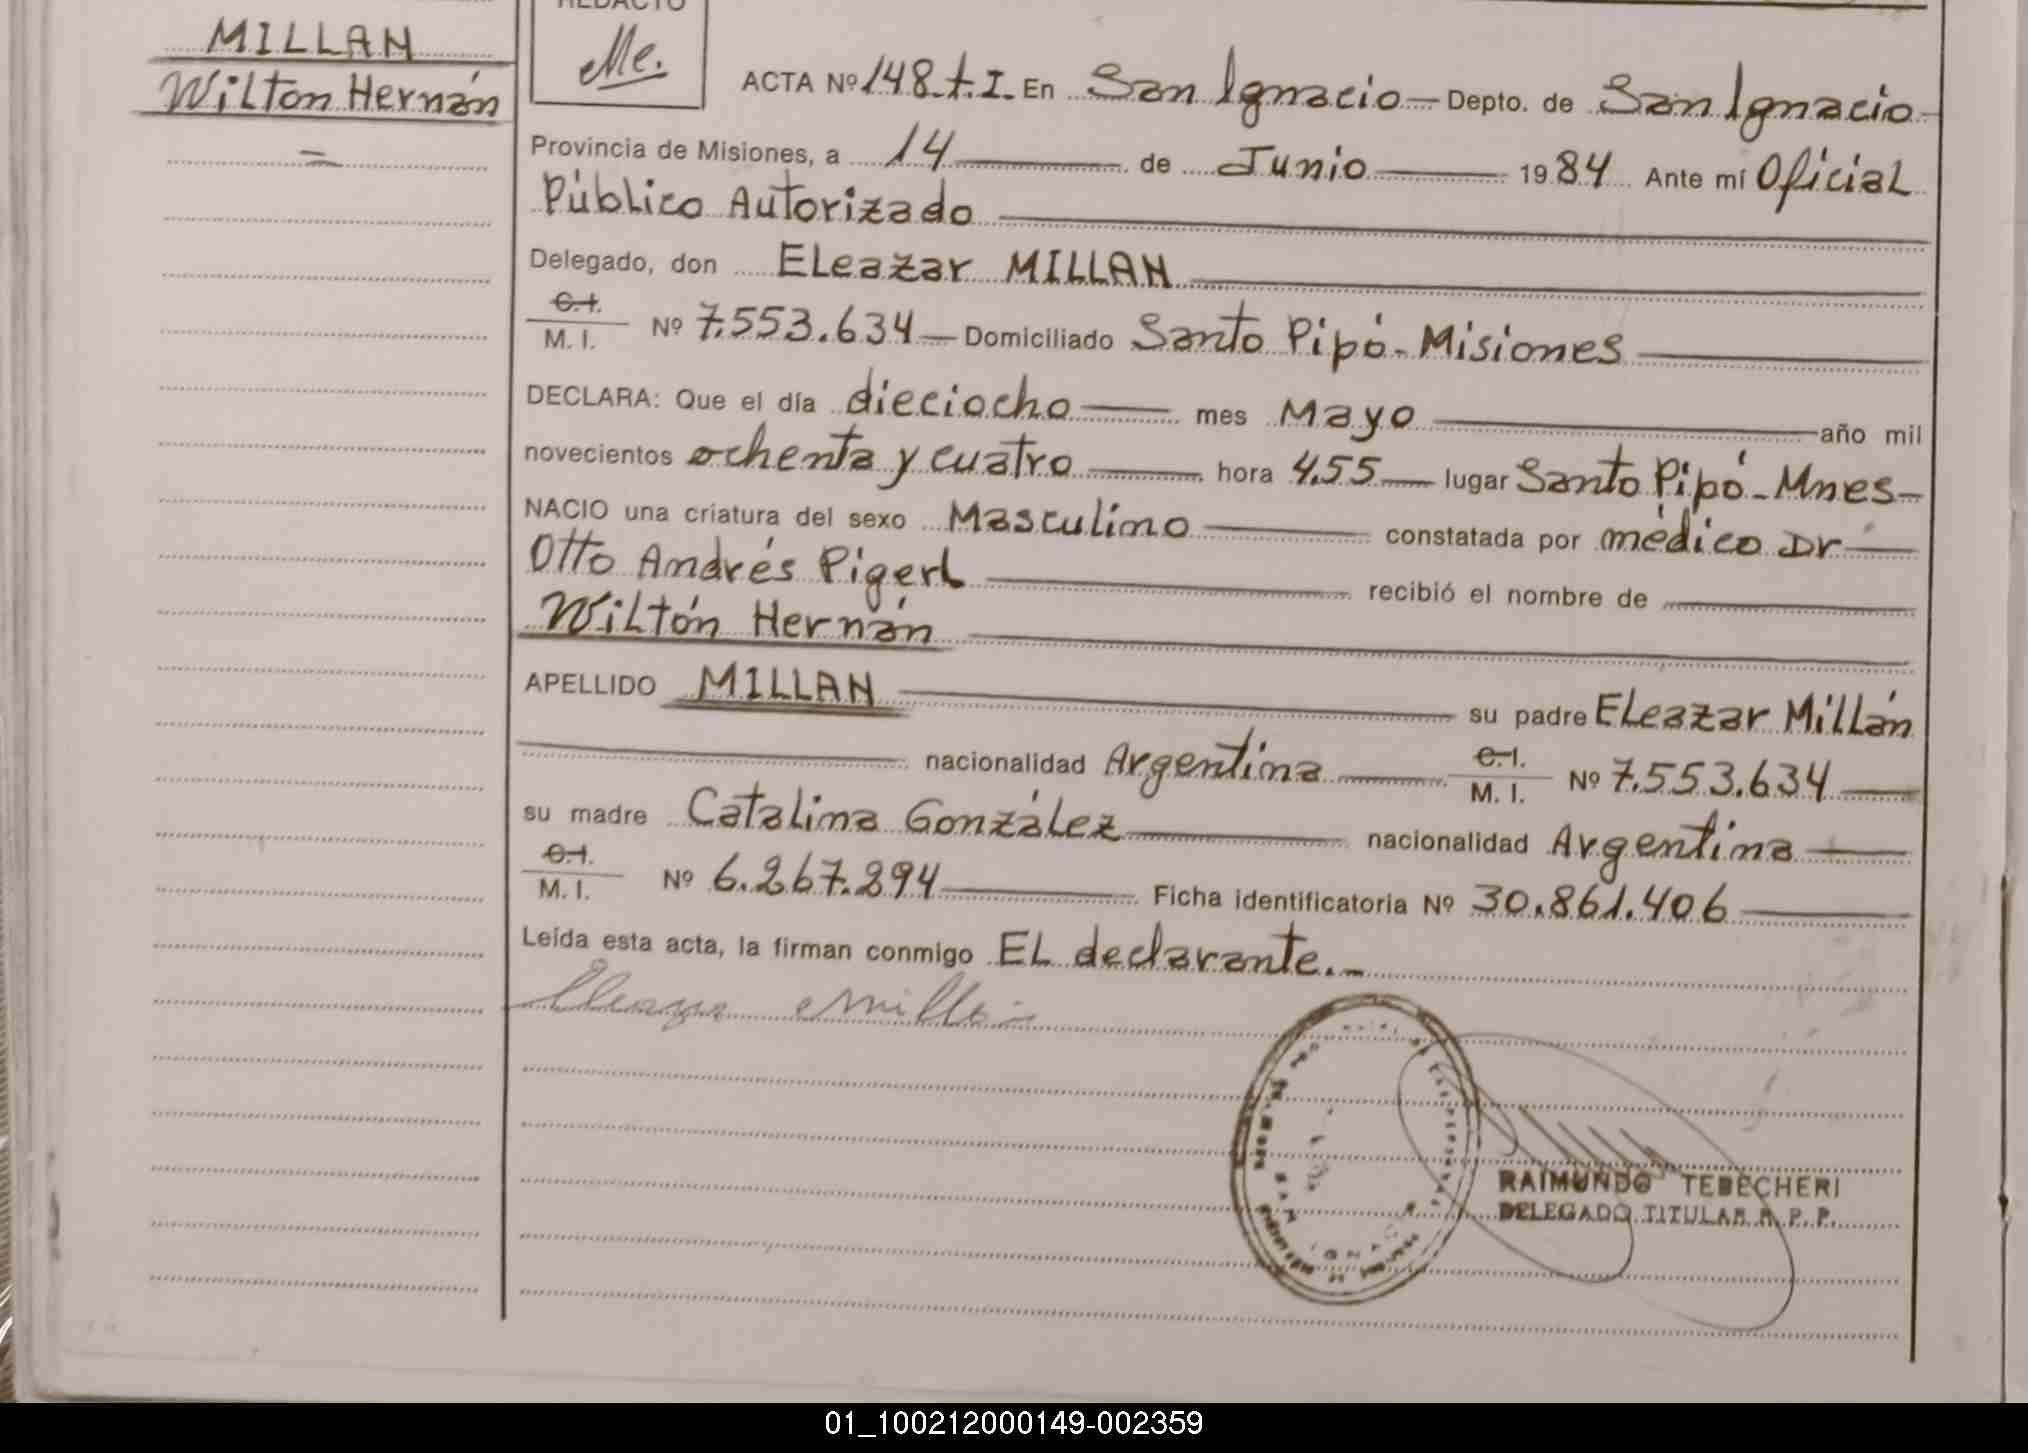 MILLAN
Wilton Hernán
REDACTO
Me.
ACTA Nº 148.t.I. En San Ignacio Depto. de San Ignacio
Provincia de Misiones, a 14 de Junio 1984 Ante mí Oficial
Público Autorizado
Delegado, don Eleazar MILLAN
C.I. M. I. Nº 7.553.634 Domiciliado Santo Pipó-Misiones
DECLARA: Que el día dieciocho mes Mayo año mil
novecientos ochenta y cuatro hora 4.55 lugar Santo Pipó-Mnes-
NACIO una criatura del sexo Masculino constatada por médico Dr
Otto Andrés Pigerl recibió el nombre de
Wiltón Hernán
APELLIDO MILLAN su padre Eleazar Millán
nacionalidad Argentina C.I. M. I. Nº 7.553.634
su madre Catalina González nacionalidad Argentina
C.I. M. I. Nº 6.267.294 Ficha identificatoria Nº 30.861.406
Leída esta acta, la firman conmigo El declarante.-
RAIMUNDO TEBECHERI
DELEGADO TITULAR R. P. P.
01_100212000149-002359